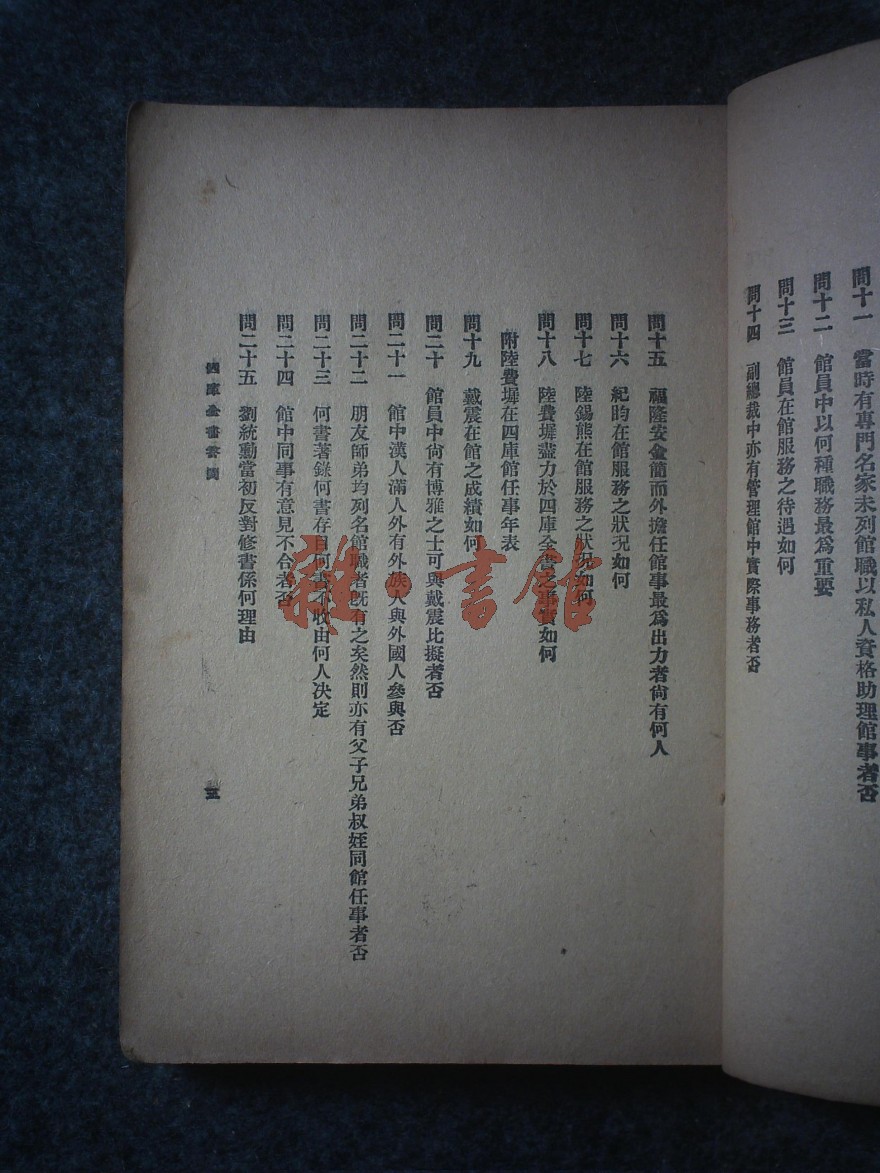 問十一　當時有專門名家未列館職以私人資格助理館事者否
問十二　館員中以何種職務最爲重要
問十三　館員在館服務之待遇如何
問十四　副總裁中亦有管理館中實際事務者否
問十五　福隆安金簡而外擔任館事最爲出力者尙有何人
問十六　紀昀在館服務之狀況如何
問十七　陸錫熊在館服務之狀況如何
問十八　陸費墀盡力於四庫全書之事實如何
附陸費墀在四庫館任事年表
問十九　戴震在館之成績如何
問二十　館員中尙有博雅之士可與戴震比擬者否
問二十一　館中漢人滿人外有外族人與外國人參與否
問二十二　朋友師弟均列名館職者旣有之矣然則亦有父子兄弟叔姪同館任事者否
問二十三　何書著錄何書存目何書不收由何人决定
問二十四　館中同事有意見不合者否
問二十五　劉統勳當初反對修書係何理由
四庫全書答問
五
雜·書館